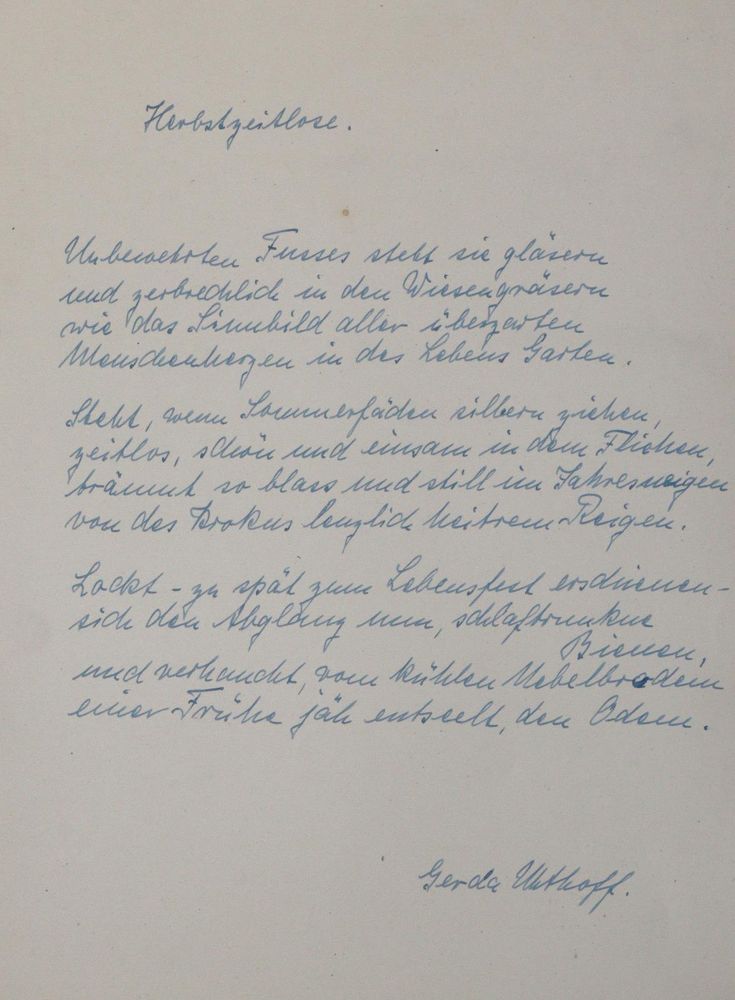 Herbstzeitlose.
Unbewehrten Fusses steht sie gläsern
und zerbrechlich in den Wiesengräsern
wie das Sinnbild aller überzarten
Menschenherzen in des Lebens Garten.
Steht, wenn Sommerfäden silbern ziehen,
zeitlos, schön und einsam in dem Fliehen,
träumt so blass und still im Jahresneigen
von des Krokus lenzlich heitrem Reigen.
Lockt - zu spät zum Lebensfest erschienen -
sich den Abglanz nun, schlaftrunkne
Bienen,
und verhaucht, vom kühlen Nebelbrodem
einer Frühe jäh entseelt, den Odem.
Gerda Uhthoff.